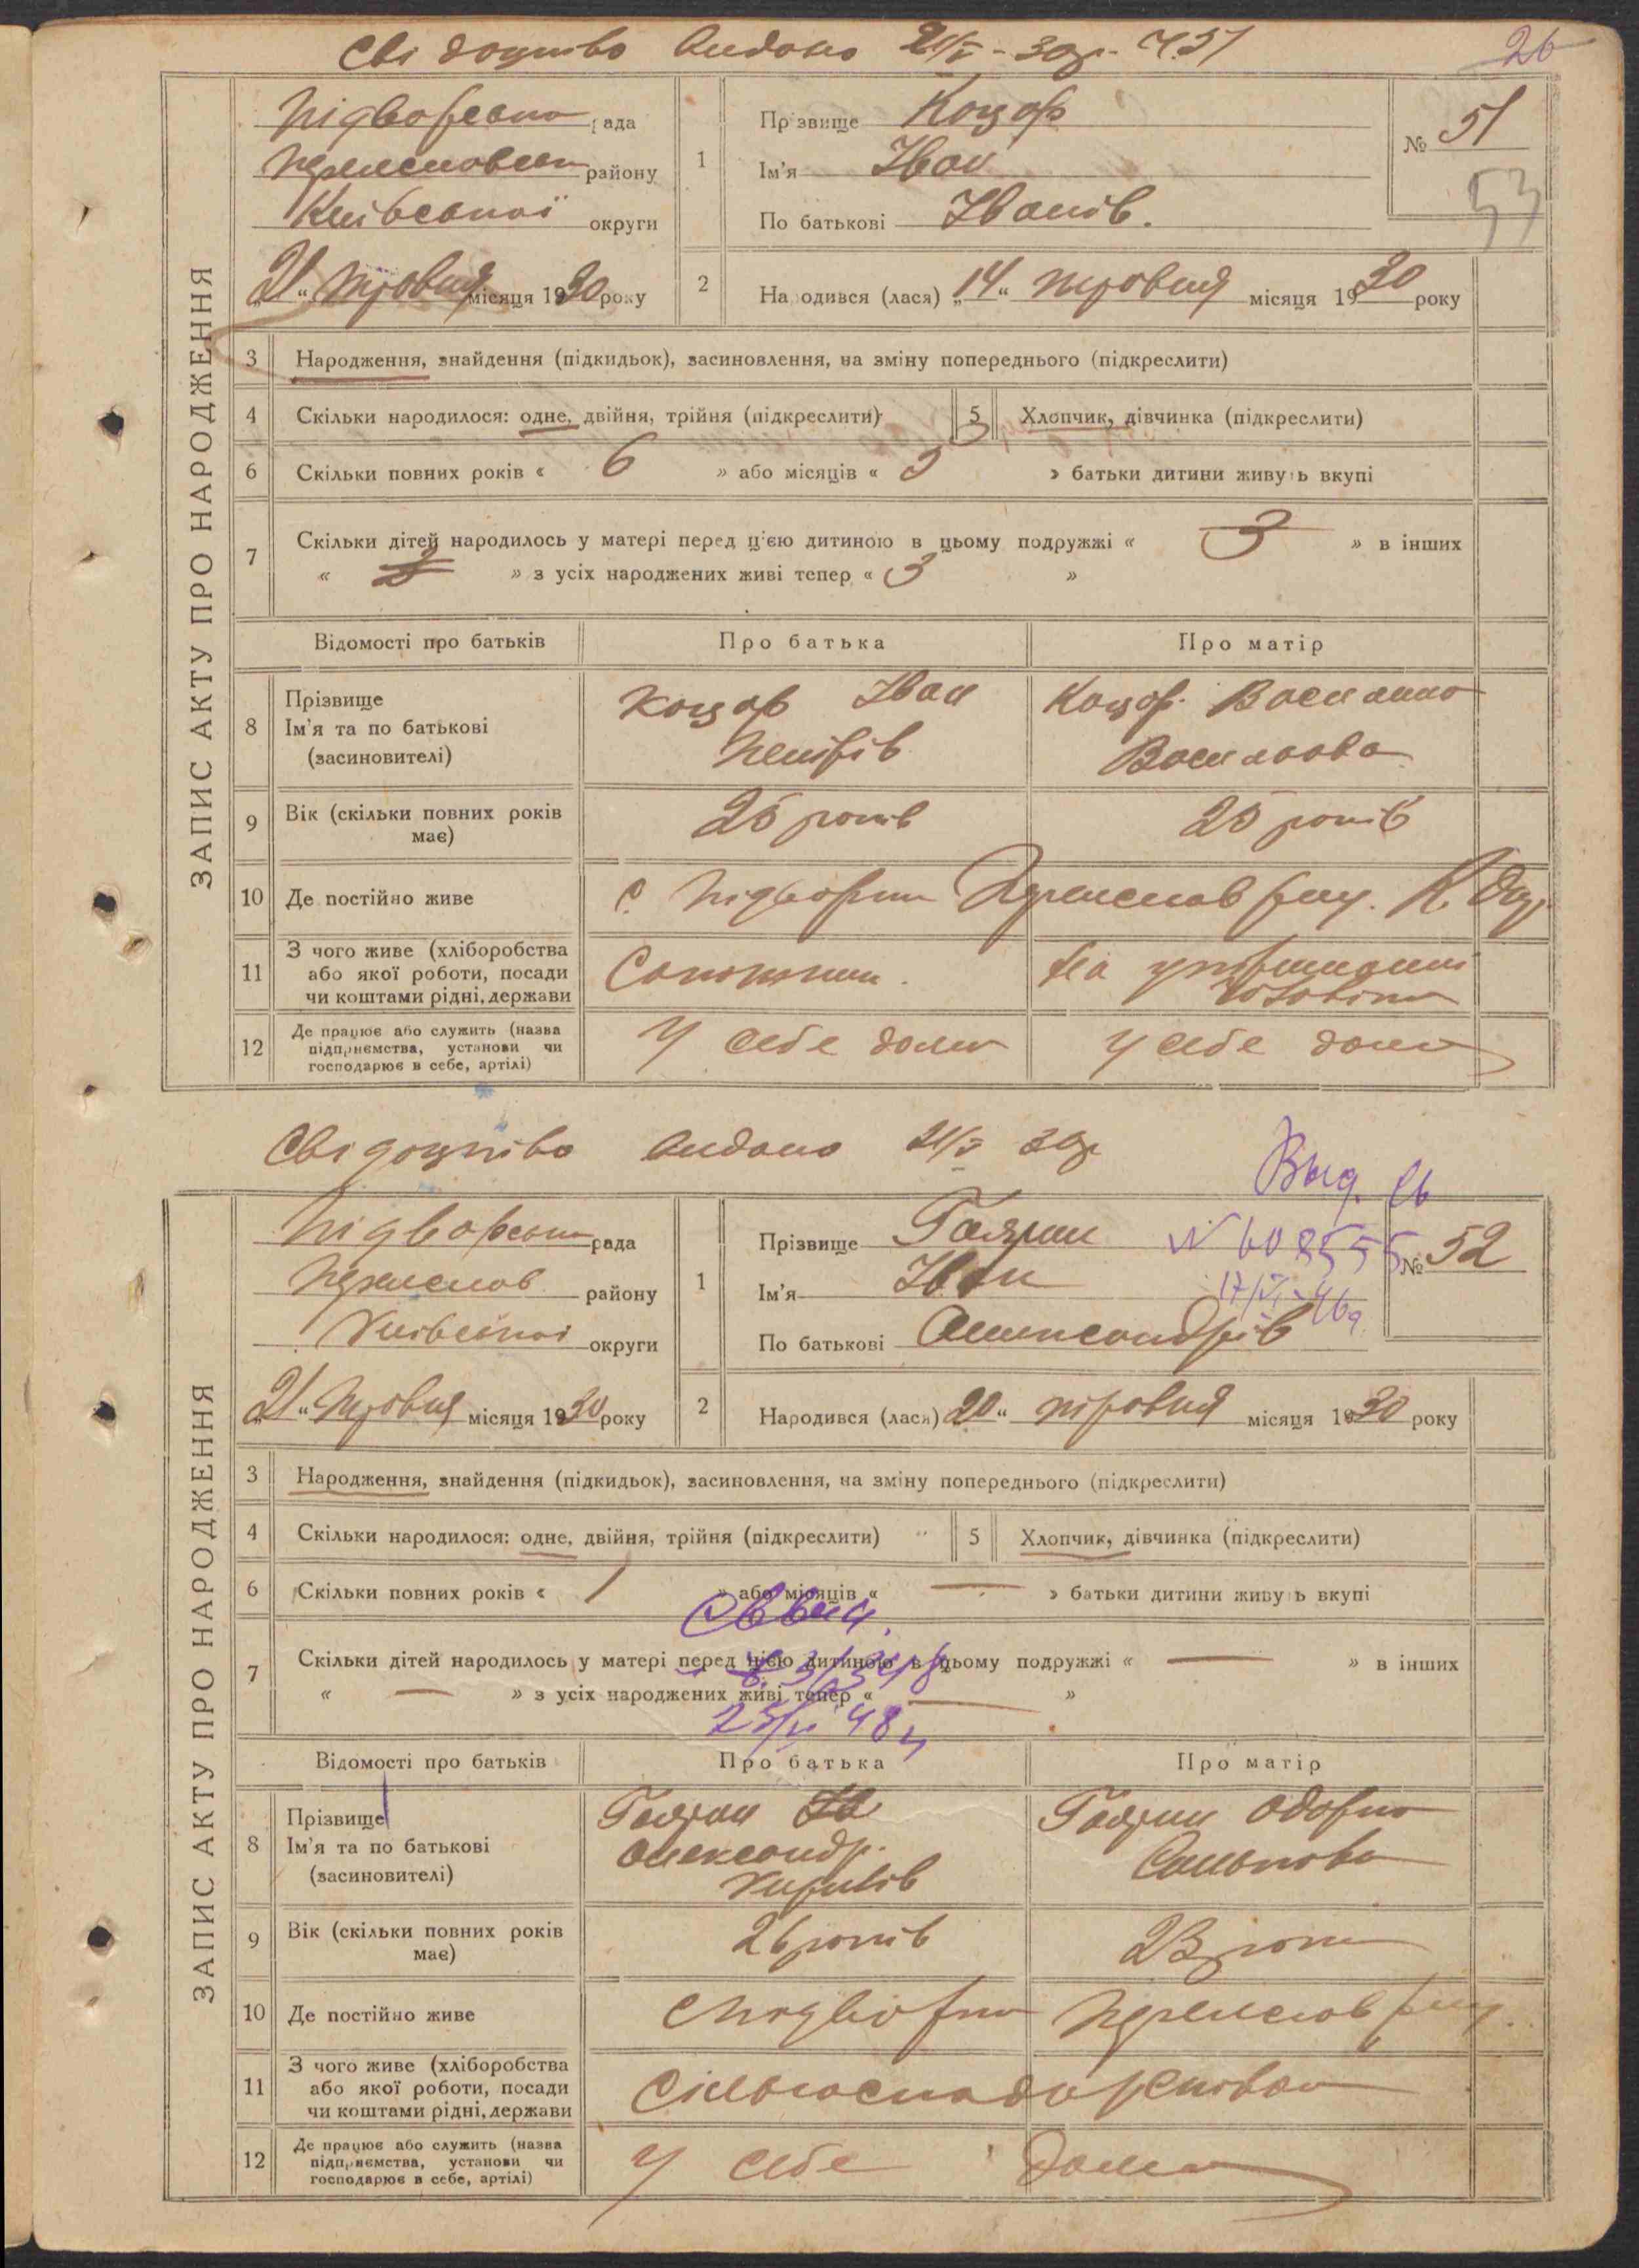 Свідоцтво видано 21/V - 30р. Ч.51
26
ЗАПИС АКТУ ПРО НАРОДЖЕННЯ
Підворська рада
Переяславськ району
Київської округи
„21“ травня місяця 1930 року
1
Прізвище Коцар
Ім'я Іван
По батькові Іванів.
№ 51
53
2
Народився (лася) „14“ травня місяця 1930 року
3 Народження, знайдення (підкидьок), засиновлення, на зміну попереднього (підкреслити)
4 Скільки народилося: одне, двійня, трійня (підкреслити) 5 Хлопчик, дівчинка (підкреслити)
6 Скільки повних років « 6 » або місяців « 3 » батьки дитини живуть вкупі
7 Скільки дітей народилось у матері перед цією дитиною в цьому подружжі « 3 » в інших
« » з усіх народжених живі тепер « 3 »
Відомості про батьків Про батька Про матір
8 Прізвище
Ім'я та по батькові
(засиновителі)
Коцар Іван
Петрів
Коцар Василина
Василова
9 Вік (скільки повних років
має)
25 років 25 років
10 Де постійно живе с. Підворки Переяслав рну. К. Окр.
11 З чого живе (хліборобства
або якої роботи, посади
чи коштами рідні, держави
на утриманні
чоловіка
12 Де працює або служить (назва
підприємства, установи чи
господарює в себе, артілі)
У себе дома у себе дома
Свідоцтво видано 21/V 30р
Выд. св
N 608555
17/VI-46г
ЗАПИС АКТУ ПРО НАРОДЖЕННЯ
Підворська рада
Переяслав району
Київської округи
„21“ травня місяця 1930 року
1
Прізвище
Ім'я Іван
По батькові Олександрів
№ 52
2
Народився (лася) „20“ травня місяця 1930 року
3 Народження, знайдення (підкидьок), засиновлення, на зміну попереднього (підкреслити)
4 Скільки народилося: одне, двійня, трійня (підкреслити) 5 Хлопчик, дівчинка (підкреслити)
6 Скільки повних років « 1 » або місяців « — » батьки дитини живуть вкупі
7 Скільки дітей народилось у матері перед цією дитиною в цьому подружжі « — » в інших
« — » з усіх народжених живі тепер « — »
Відомості про батьків Про батька Про матір
8 Прізвище
Ім'я та по батькові
(засиновителі)
Олександр.
Кирилів
Одарка
9 Вік (скільки повних років
має)
26 років 23 роки
10 Де постійно живе с Підворки Переяслав рну.
11 З чого живе (хліборобства
або якої роботи, посади
чи коштами рідні, держави
Сільгосподарством
12 Де працює або служить (назва
підприємства, установи чи
господарює в себе, артілі)
У себе дома